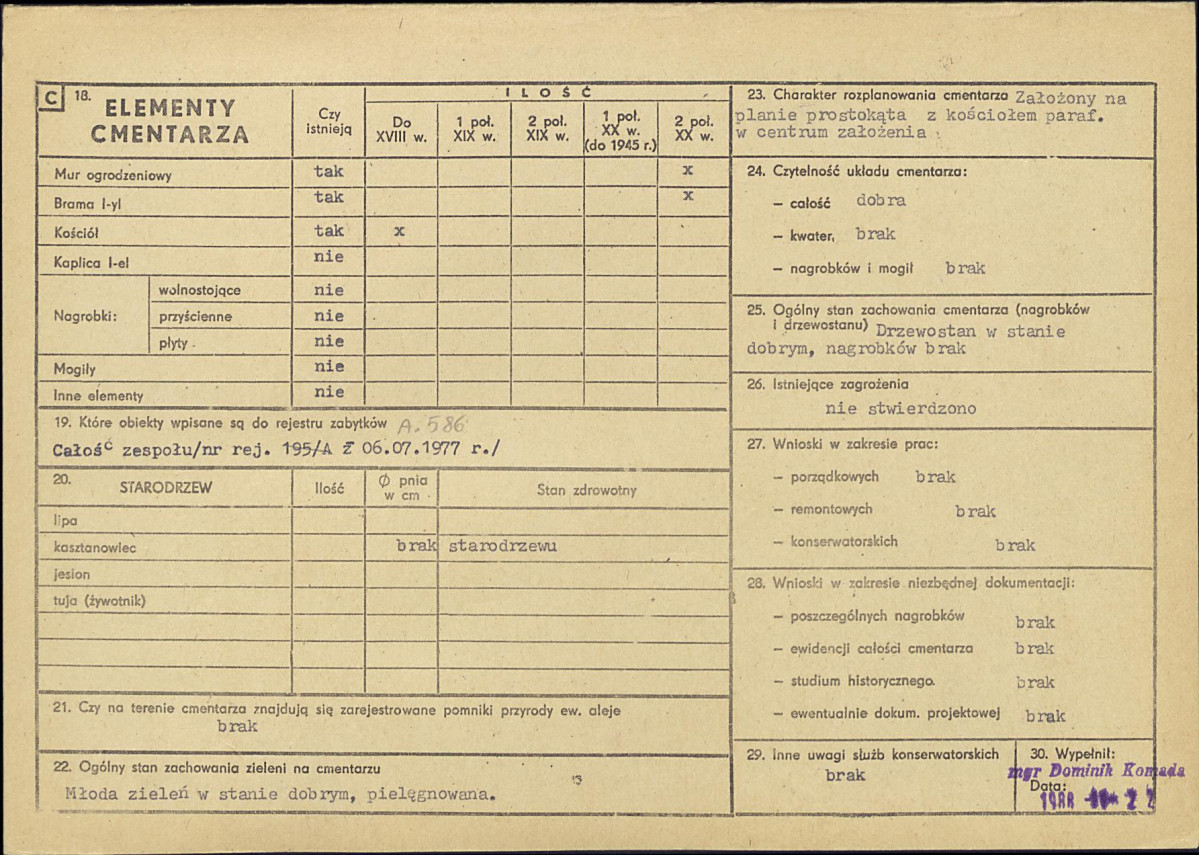 C 18. ELEMENTY CMENTARZA
Czy istnieją
I L O Ś Ć
Do XVIII w.
1 poł. XIX w.
2 poł. XIX w.
1 poł. XX w. (do 1945 r.)
2 poł. XX w.
Mur ogrodzeniowy tak x
Brama I-yl tak x
Kościół tak x
Kaplica I-el nie
Nagrobki: wolnostojące nie
przyścienne nie
płyty nie
Mogiły nie
Inne elementy nie
19. Które obiekty wpisane są do rejestru zabytków A.586
Całość zespołu/nr rej. 195/A z 06.07.1977 r./
20. STARODRZEW Ilość Ø pnia w cm Stan zdrowotny
lipa
kasztanowiec brak starodrzewu
jesion
tuja (żywotnik)
21. Czy na terenie cmentarza znajdują się zarejestrowane pomniki przyrody ew. aleje
brak
22. Ogólny stan zachowania zieleni na cmentarzu
Młoda zieleń w stanie dobrym, pielęgnowana.
23. Charakter rozplanowania cmentarza Założony na
planie prostokąta z kościołem paraf.
w centrum założenia
24. Czytelność układu cmentarza:
– całość dobra
– kwater, brak
– nagrobków i mogił brak
25. Ogólny stan zachowania cmentarza (nagrobków
i drzewostanu) Drzewostan w stanie
dobrym, nagrobków brak
26. Istniejące zagrożenia
nie stwierdzono
27. Wnioski w zakresie prac:
– porządkowych brak
– remontowych brak
– konserwatorskich brak
28. Wnioski w zakresie niezbędnej dokumentacji:
– poszczególnych nagrobków brak
– ewidencji całości cmentarza brak
– studium historycznego. brak
– ewentualnie dokum. projektowej brak
29. Inne uwagi służb konserwatorskich
brak
30. Wypełnił:
mgr Dominik Komada
Data:
1988